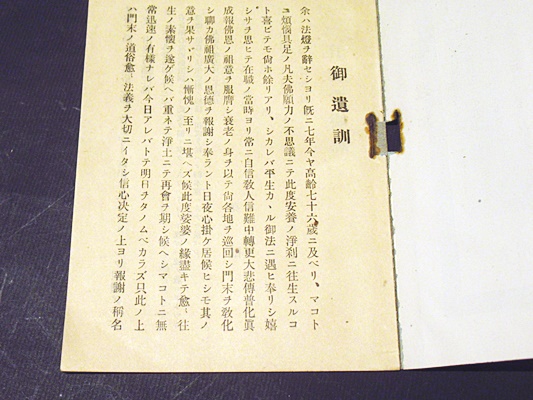 御遺訓
余ハ法燈ヲ辭セシヨリ旣ニ七年今ヤ高齡七十六歲ニ及ベリ、マコト
ニ煩惱具足ノ凡夫佛願力ノ不思議ニテ此度安養ノ淨刹ニ往生スルコ
ト喜ビテモ尙ホ餘リアリ、シカレバ平生カヽル御法ニ遇ヒ奉リシ嬉
シサヲ思ヒテ在職ノ當時ヨリ常ニ自信敎人信難中轉更大悲傳普化眞
成報佛恩ノ祖意ヲ服膺シ衰老ノ身ヲ以テ尙各地ヲ巡回シ門末ヲ敎化
シ聊カ佛祖廣大ノ恩德ヲ報謝シ奉ラント日夜心掛ケ居候ヒシモ其ノ
意ヲ果サヾリシハ慚愧ノ至リニ堪ヘズ候此度娑婆ノ緣盡キテ愈〻往
生ノ素懷ヲ遂ゲ候ヘバ重ネテ淨土ニテ再會ヲ期シ候ヘシマコトニ無
常迅速ノ有樣ナレバ今日アレバトテ明日ヲタノムベカラズ只此ノ上
ハ門末ノ道俗愈〻法義ヲ大切ニイタシ信心決定ノ上ヨリ報謝ノ稱名